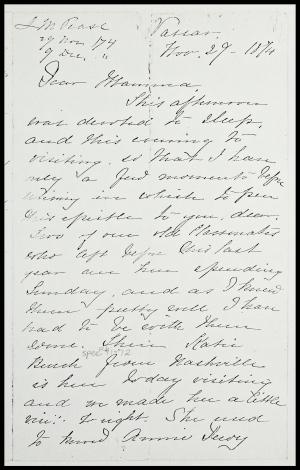 J. M. Pease
29 Nov. '74
9 Dec. "
Vassar.
Nov. 29 - 1874
Dear Mamma
This afternoon
was devoted to sleep,
and this evening to
visiting, so that I have
only a few moments before
in which to pen
this epistle to you, dear.
Two of our old classmates
who left before this last
year are here spending
Sunday, and as I knew
them pretty well I have
had to be with them
some. Then Katie
from Nashville
is here today visiting
and we made her a little
visit tonight. She used
to know Annie
spec